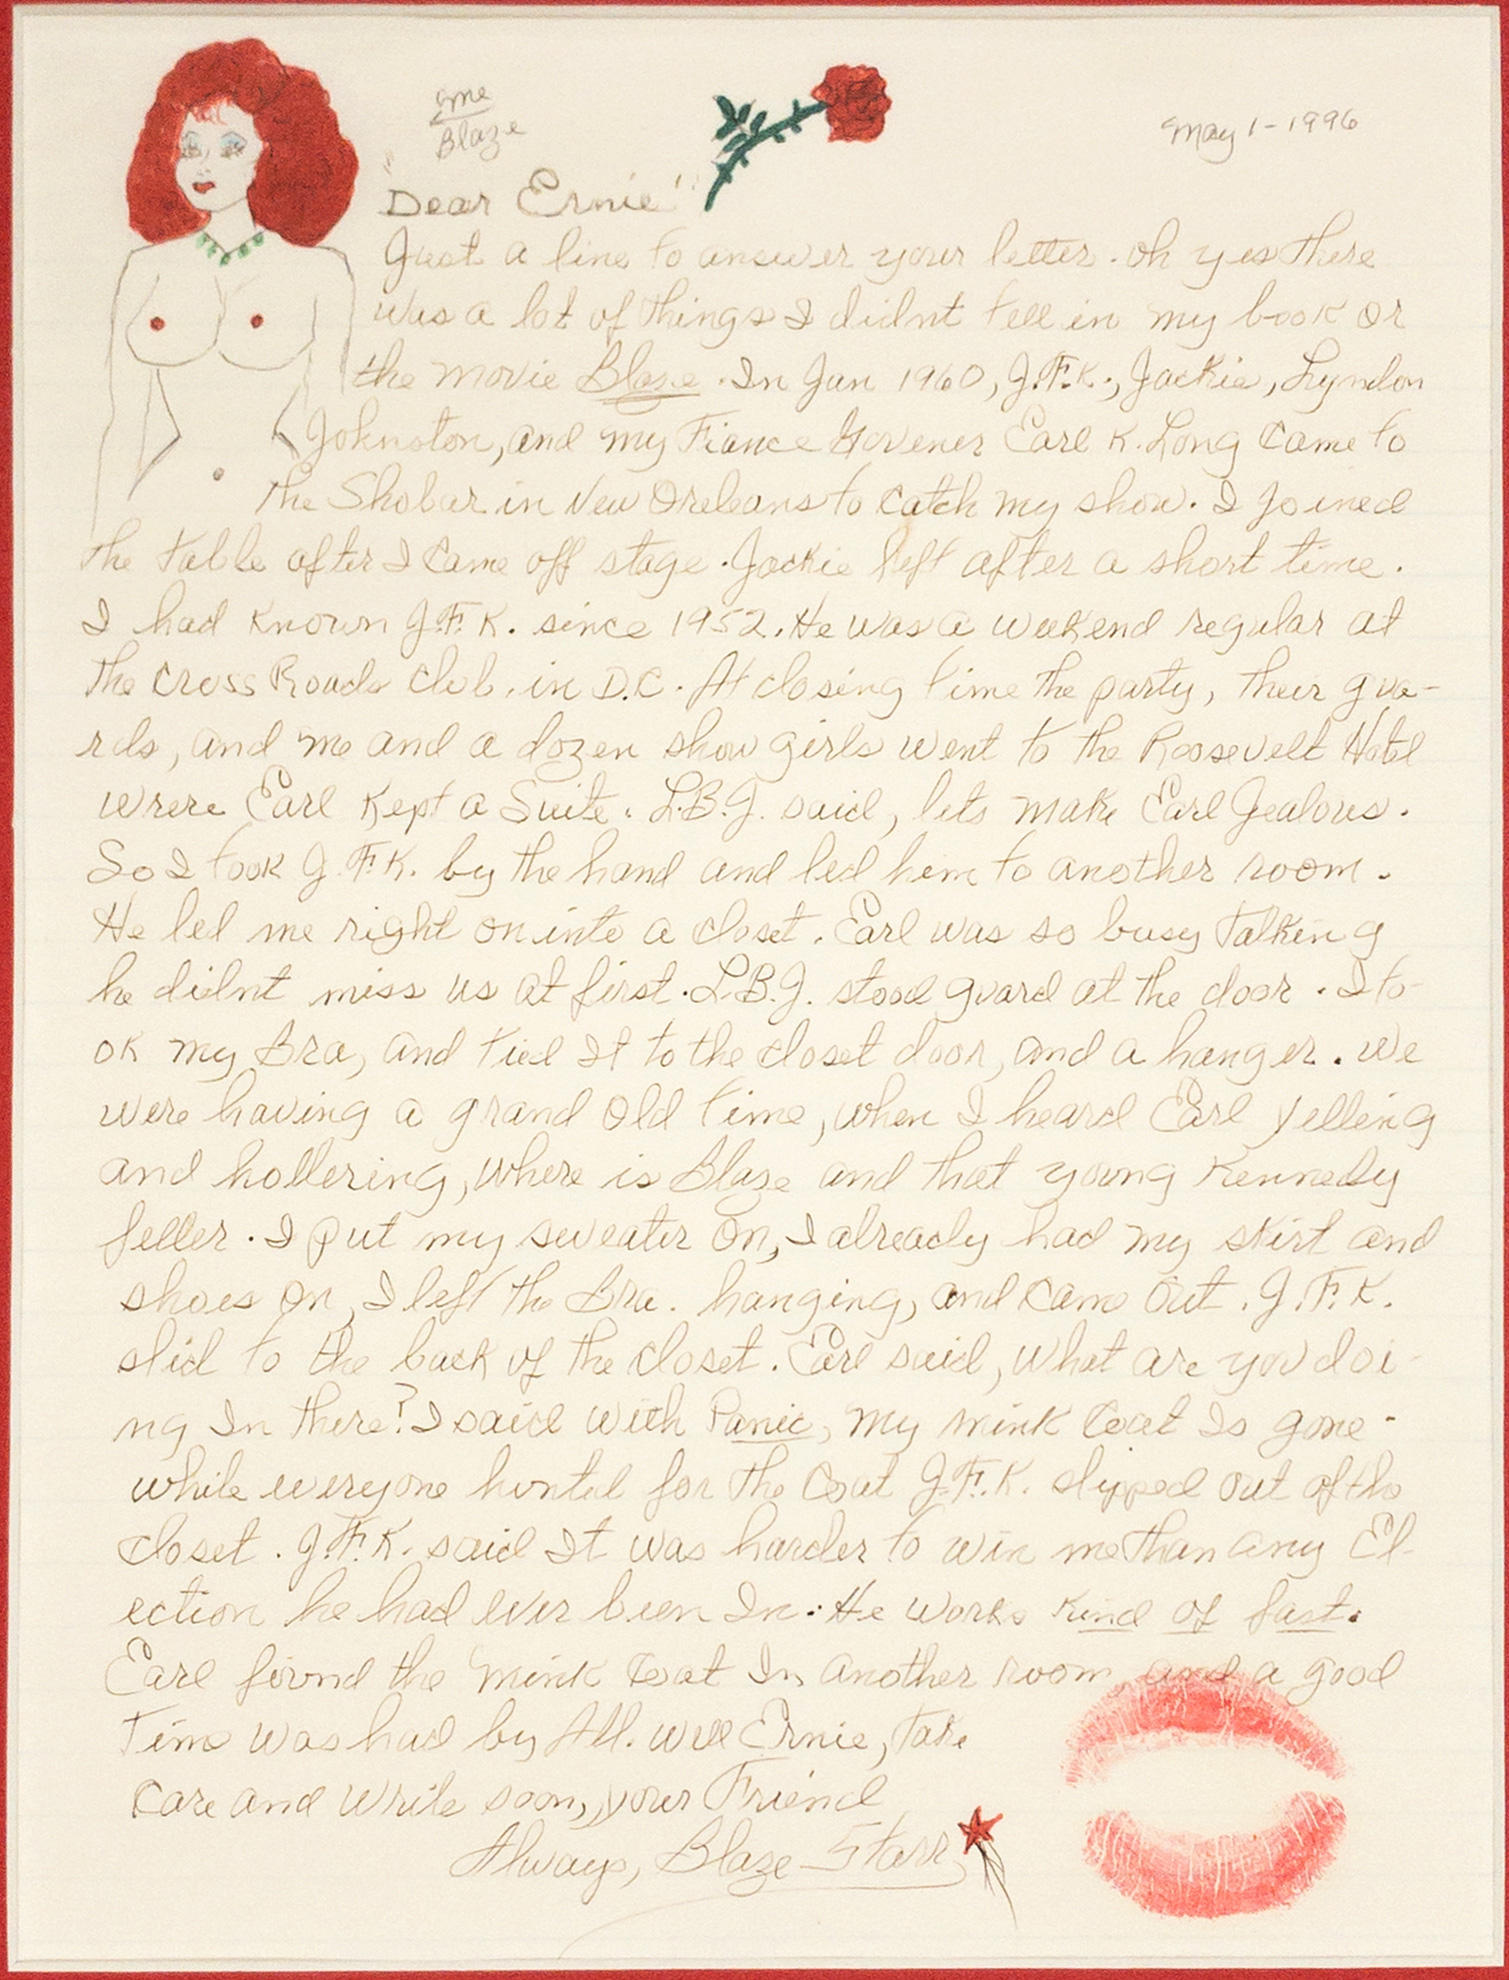 me
Blaze
May 1-1996
"Dear Ernie"
Just a line to answer your letter. oh yes there
was a lot of things I didnt tell in my book or
the movie Blaze. In Jan 1960, J.F.K., Jackie, Lyndon
Johnston, and my Fiance Govener Earl K. Long came to
the Shobar in New Orleans to catch my show. I joined
the table after I came off stage. Jackie left after a short time.
I had known J.F.K. since 1952. He was a weekend regular at
the Cross Roads Club, in D.C. At closing time the party, their gua-
rds, and me and a dozen show girls went to the Roosevelt Hotel
wrere Earl kept a Suite. L.B.J. said, lets make Earl Jealous.
So I took J.F.K. by the hand and led him to another room.
He led me right on into a closet. Earl was so busy talking
he didnt miss us at first. L.B.J. stood guard at the door. I to-
ok my Bra, and tied It to the closet door, and a hanger. We
were having a grand old time, when I heard Earl yelling
and hollering, where is Blaze and that young Kennedy
feller. I put my sweater on, I already had my skirt and
shoes on, I left the Bra. hanging, and came out. J.F.K.
slid to the back of the closet. Earl said, what are you doi-
ng In there? I said with Panic, my mink Coat Is gone-
while everyone hunted for the Coat J.F.K. slipped out of the
closet. J.F.K. said It was harder to win me than any El-
ection he had ever been In. He works kind of fast.
Earl found the mink Coat In another room, and a good
Time was had by All. Well Ernie, take
Care and write soon, your Friend
Always, Blaze Starr